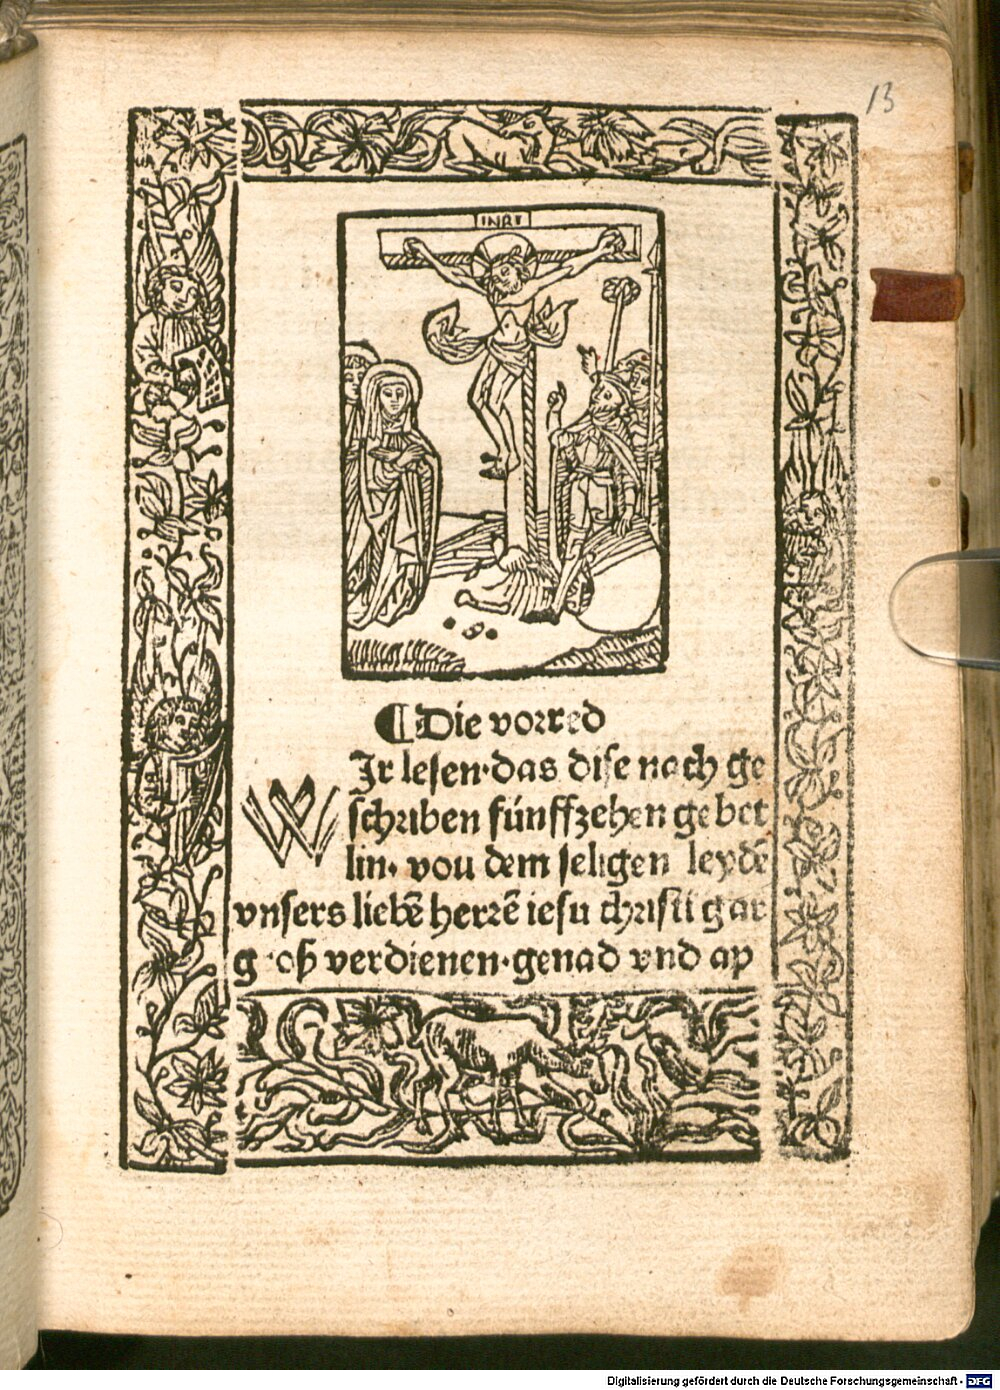 13
INRI
¶ Die vorred
WIr lesen·das dise nach ge
schriben fúnffzehen gebet
lin· vou dem seligen leydē
vnsers liebē herrē iesu christi gar
groß verdienen·genad vnd ap
Digitalisierung gefördert durch die Deutsche Forschungsgemeinschaft - DFG